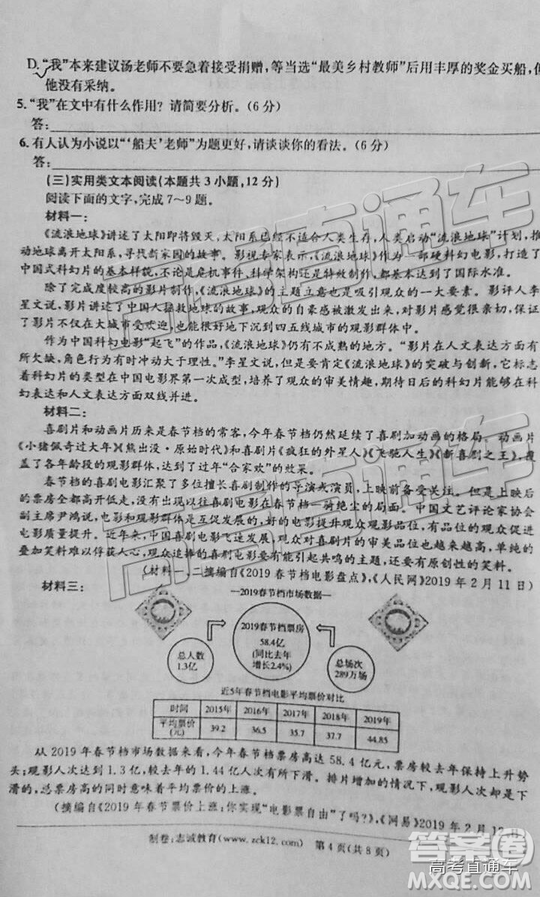 D.“我”本来建议汤老师不要急着接受捐赠,等当选“最美乡村教师”后用丰厚的奖金买船,但
他没有采纳。
5.“我”在文中有什么作用?请简要分析。(6分)
答:
6.有人认为小说以“‘船夫’老师”为题更好,请谈谈你的看法。(6分)
答:
(三)实用类文本阅读(本题共3小题,12分)
阅读下面的文字,完成7~9题。
材料一:
《流浪地球》讲述了太阳即将毁灭,太阳系已经不适合人类生存,人类启动“流浪地球”计划,推
动地球离开太阳系,寻找新家园的故事。影视专家表示,《流浪地球》作为一部硬科幻电影,打造了
中国式科幻片的基本样貌,不论是危机事件、科学架构还是其他方面,基本都达到了国际水准。
除了完成度较高的影片制作,《流浪地球》的主题立意也是吸引观众的一大要素。影评人李
星文说,影片讲述了中国人拯救地球的故事,观众的自豪感被激发出来,对影片感觉很亲切,保证
了影片不仅在城市受欢迎,也能很好地下沉到四五线城市的观影群体中。
作为中国科幻电影“起飞”的作品,《流浪地球》仍有不成熟的地方。“影片在人文表达方面有
所欠缺,角色行为有时冲动大于理性。”李星文说,但是要肯定《流浪地球》的突破与创新,它标志
着科幻片的类型在中国电影界第一次成型,培养了观众的审美情趣,期待日后的科幻片能够在科
幻表达和人文表达方面双线并进。
材料二:
喜剧片和动画片历来是春节档的常客,今年春节档仍然延续了喜剧加动画的格局。动画片
《小猪佩奇过大年》《熊出没·原始时代》和喜剧片《疯狂的外星人》《飞驰人生》《新喜剧之王》,覆
盖了各年龄段的观影群体,达到了过年“合家欢”的效果。
春节档的喜剧电影汇聚了多位擅长喜剧制作的导演或演员,上映前备受关注。但是上映后
的票房全都高开低走,没有出现以往喜剧电影在春节档一骑绝尘的局面。中国文艺评论家协会
副主席尹鸿说,电影和观影群体正发生着变化,电影逐步提升观众观影品位,有品位的观众也促使
电影质量提升。近年来,中国喜剧电影飞速发展,观众对喜剧影片的审美品位也大幅提升,单纯的
叠加笑料难以俘获人心,观众渴求的喜剧电影要有能引起共鸣的主题,还要有原创性的笑料。
(材料一、二摘编自《2019春节档电影盘点》,《人民网》2019年2月11日)
材料三:
2019春节档市场数据
2019春节档票房
58.4亿
(同比去年
增长2.4%)
总人数
1.3亿
总场次
289万场
近5年春节档电影平均票价对比
时间 2015年 2016年 2017年 2018年 2019年
平均票价(元) 39.2 36.5 35.7 37.7 44.85
从2019年春节档市场数据来看,今年春节档票房高达58.4亿元,票房较去年保持上升势
头;观影人次达到1.3亿,较去年的1.44亿人次有所下滑。排片增加的情况下,观影人次却下
滑,总票房高的同时意味着平均票价的上涨。
(摘编自《2019年春节票价上涨:你实现“电影票自由”了吗?》,《网易》2019年2月12日)
制卷:志诚教育(www.zck12.com) 第4页(共8页)
高考直通车
答案圈
高考直通车
MXQE.COM